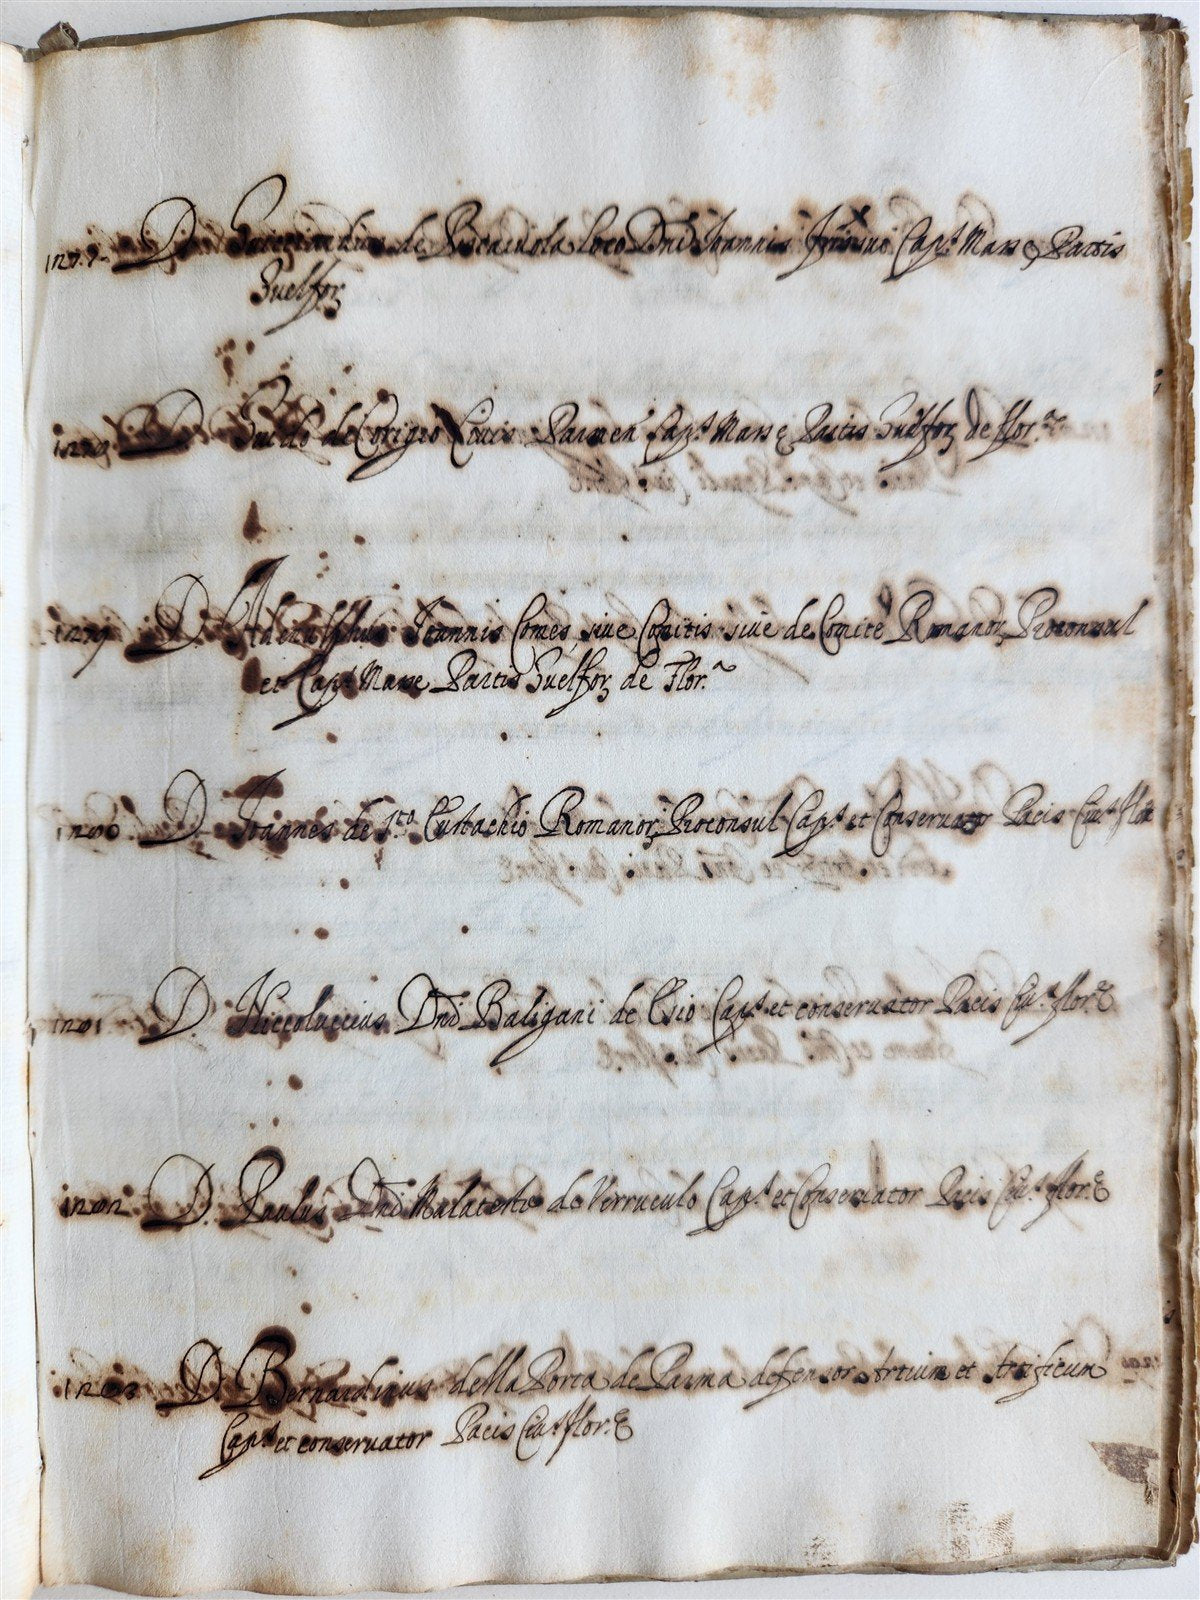 D. de loco Dni Joannis Capt. Masse Partis
Guelfor
D. Guido de Corigeo Civis Parmen Capt. Masse Partis Guelfor de flor.ᵃ
1279 D. Adenulphus Joannis Comes, siue Comitis siue de Comite Romanor Proconsul
et Capt. Masse Partis Guelfor de Flor.ᵃ
1280. D. Joannes de S.to Eustachio Romanor Proconsul Capt. et Conservator Pacis Ciu.t
1281 D. Niccoluccius Dni Baligani de Esio Capt. et conseruator Pacis Ciu.t flor.e
1282 D. Paulus Dni Malateste de Verruculo Capt. et Conseruator Pacis Ciu.t flor.e
1283 D. Bernardinus della Porta de Parma defensor Artium et Artificum
Capt. et conseruator Pacis Ciu.t flor.e